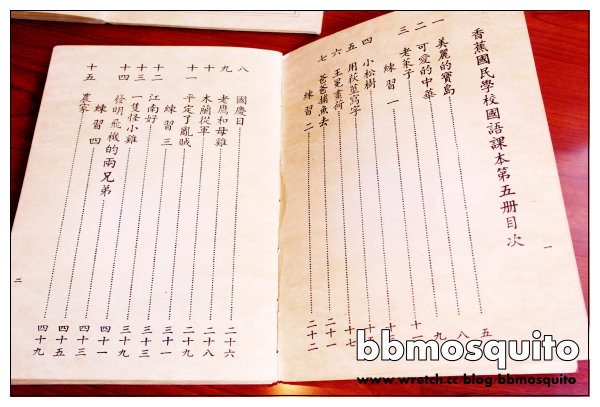 香蕉國民學校國語課本第五册目次
一 美麗的寶島 五
二 可愛的中華 八
三 老萊子 九
練習一 十一
四 小松樹
五 用荻莖寫字
六 王冕畫荷 十七
七 爸爸捕魚去 二十一
練習二 二十二
一
八 國慶日 二十六
九 老鷹和母雞 二十八
十 木蘭從軍 二十九
十一 平定了亂賊 三十一
練習三
十二 江南好
十三 一隻怪小雞 四十一
十四 發明飛機的兩兄弟 四十三
練習四 四十五
十五 農家 四十九
二
bbmosquito
www.wretch.cc/blog/bbmosquito